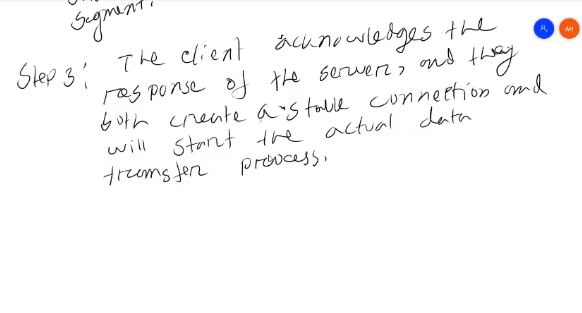 segment.
Step 3: The client acknowledges the
response of the server, and they
both create a stable connection and
will start the actual data
transfer process.